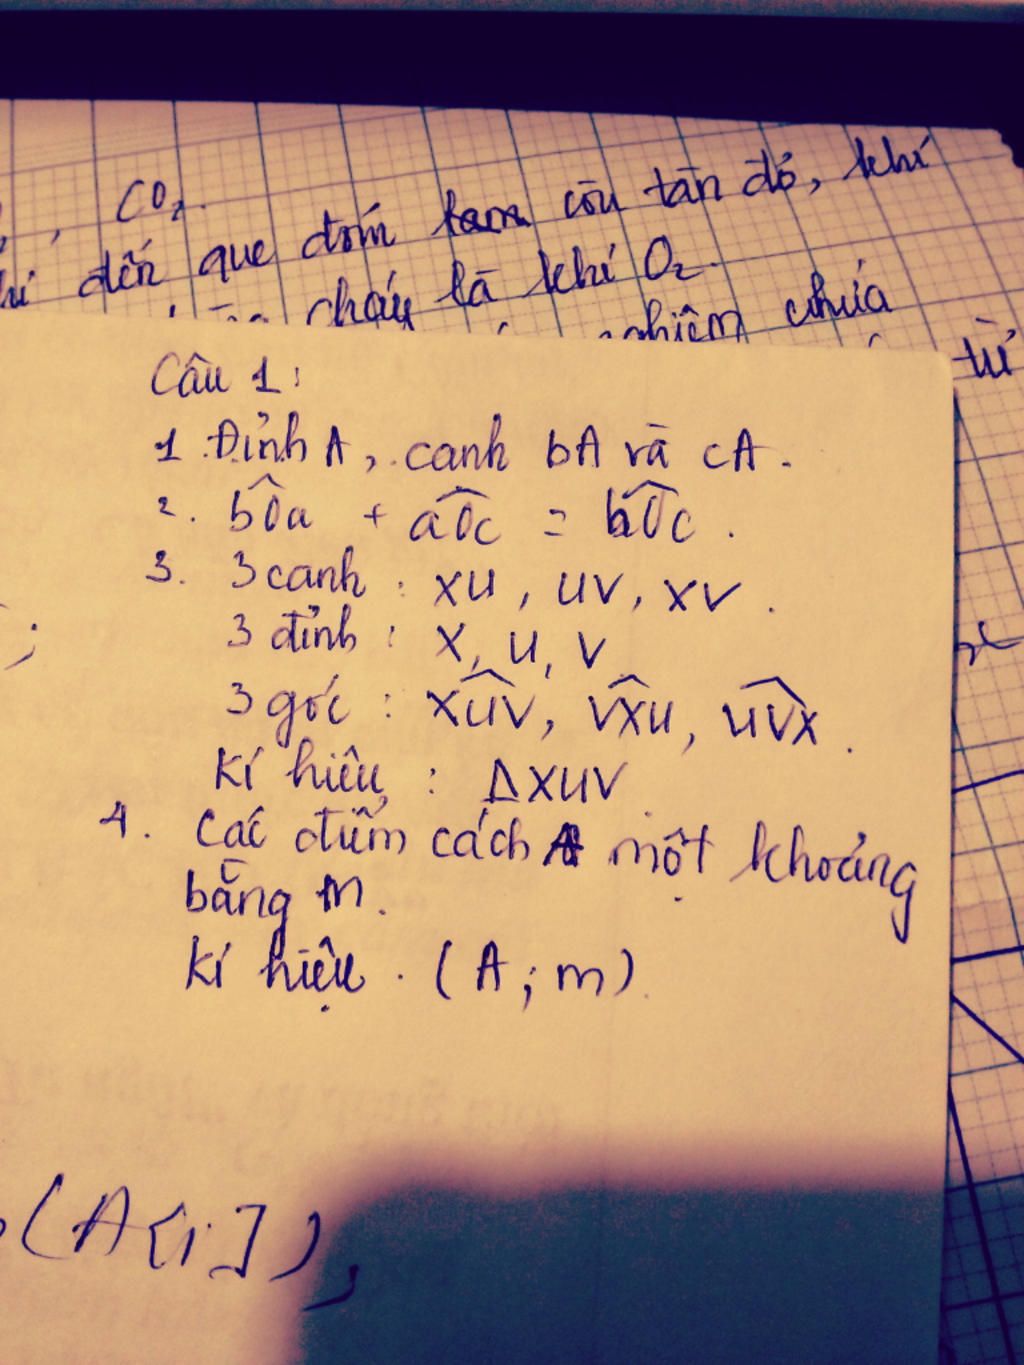 CO₂.
đến que đóm còn tàn đỏ, khí
cháy là khí O₂.
nghiệm chứa
từ
Câu 1:
1. Đỉnh A, canh bA và cA.
2. bÔa + aÔc = bÔc.
3. 3 canh : XU, UV, XV.
3 đỉnh : X, U, V
3 góc : XÛV, VX̂U, UV̂X.
Kí hiệu : ΔXUV
4. Các điểm cách A một khoảng
bằng m.
Kí hiệu . (A ; m).
(A[i]),